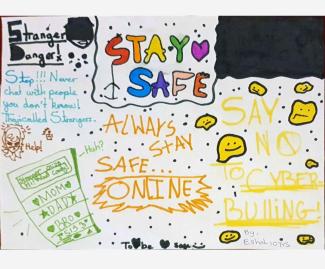 Stranger
Danger!
Stop!!! Never
chat with people
you don't know!
They're called Strangers.
Help!
Huh?
MOM
DAD
BRO
SIS
STAY
SAFE
ALWAYS
STAY
SAFE...
ONLINE
To be safe
SAY
NO
TO CYBER
BULLING!
By:
Eshal 10 YRS